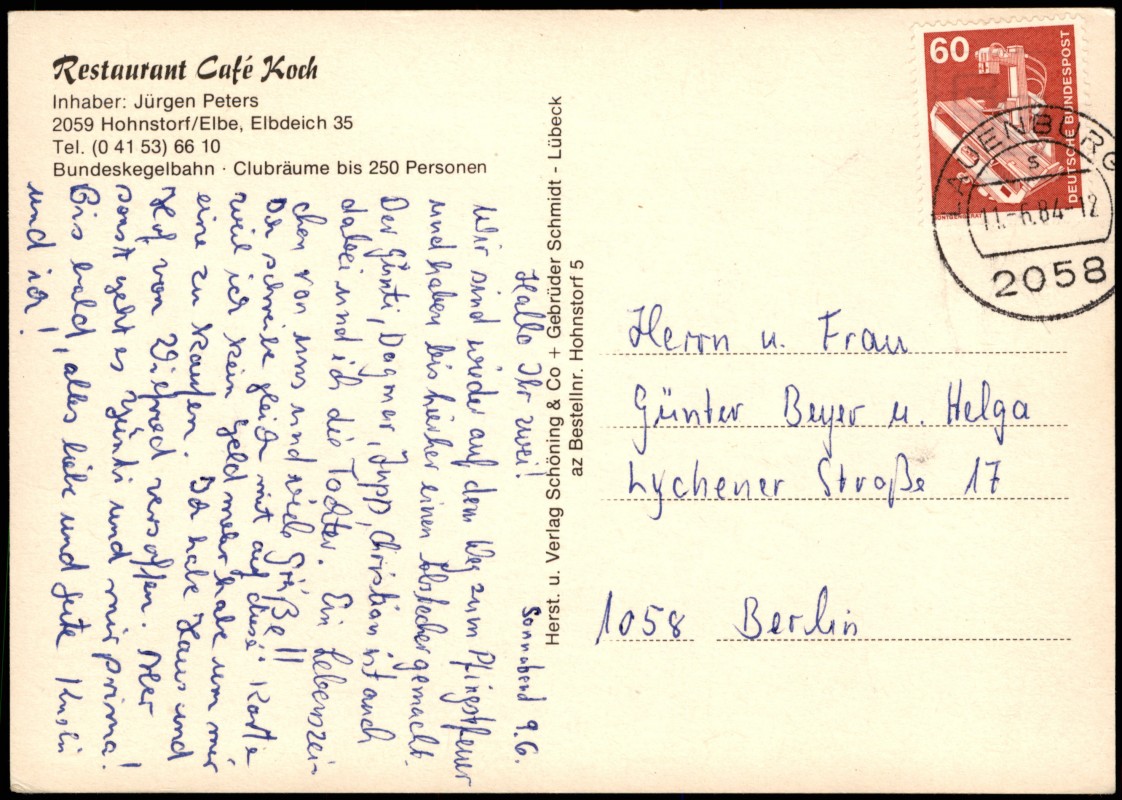 Restaurant Café Koch
Inhaber: Jürgen Peters
2059 Hohnstorf/Elbe, Elbdeich 35
Tel. (0 41 53) 66 10
Bundeskegelbahn · Clubräume bis 250 Personen
Sonnabend 9.6.
Hallo Ihr zwei!
Wir sind wieder auf dem Weg zum Pfingstfeuer
und haben bis hierher einen Abstecher gemacht.
Der Günti, Dagmar, Jupp, Christian ist auch
dabei und ich die Tochter. Ein Lebenszei-
chen von uns und viele Grüße!!
Der schreibe gleich mit auf diese Karte
weil ich kein Geld mehr habe um mir
eine zu kaufen. Da habe Haus und
Hof von versoffen. Aber
sonst geht es Günti und mir prima!
Bis bald, alles liebe und gute
und ich!
Herst. u. Verlag Schöning & Co + Gebrüder Schmidt - Lübeck
az Bestellnr. Hohnstorf 5
60
DEUTSCHE BUNDESPOST
LAUENBURG
S
11.-6.84-12
2058
Herrn u. Frau
Günter Beyer u. Helga
Lychener Straße 17
1058 Berlin